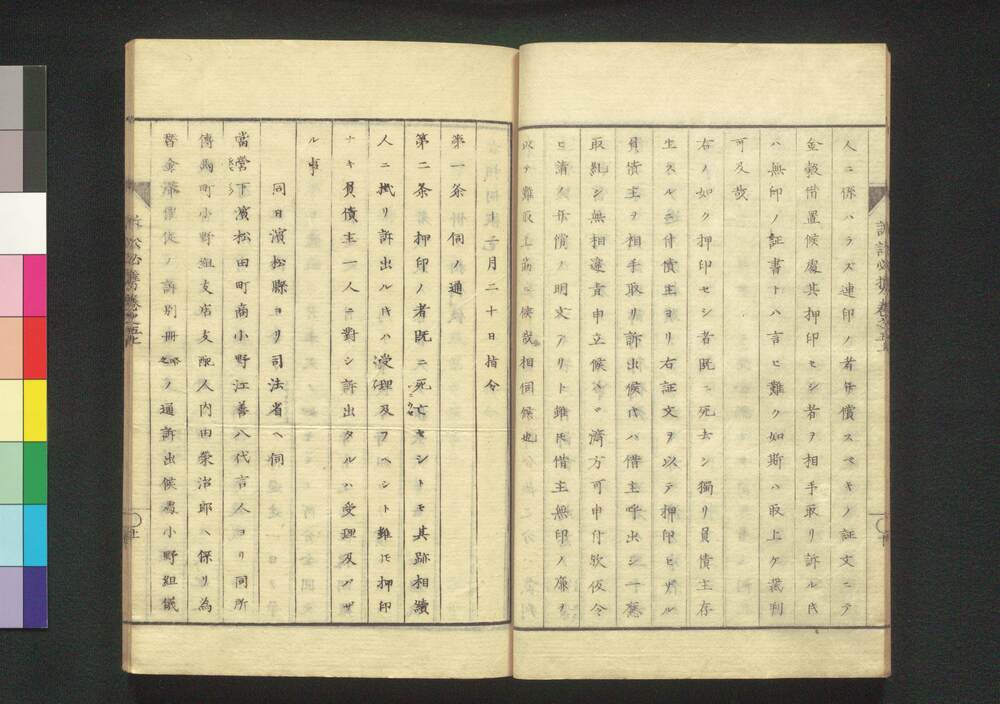 人ニ係ハラス連印ノ者辨償スヘキノ証文ニテ
金穀借置候處其押印セシ者ヲ相手取リ訴ル氏
ハ無印ノ証書トハ言ヒ難ク如斯ハ取上ケ裁判
可及哉
右ノ如ク押印セシ者既ニ死去シ獨リ負債主存
生スル迚付債主ヨリ右証文ヲ以テ押印セサル
負債主ヲ相手取リ訴出候氏ハ借主呼出シ一應
取糺シ無相違責申立候ハヽ濟方可申付欤仮令
ヒ請人辨償ノ明文アリト雖氏借主無印ノ廉ヲ
以テ難取上筋ニ候哉相伺候也
月二十日指令
第一条伺ノ通
第二条押印ノ者既ニ死亡セシトモ其跡相續
人ニ掛リ訴出ル氏ハ受理及フヘシト雖氏押印
ナキ負債主一人ニ對シ訴出タルハ受理及バザ
ル事
同日濱松縣ヨリ司法省ヘ伺
當管下濱松田町商小野江善八代言人ヨリ同所
傳馬町小野組支店支配人内田榮治郎ヘ係リ為
替金滞償促ノ訴別冊ノ通訴出候處小野組儀